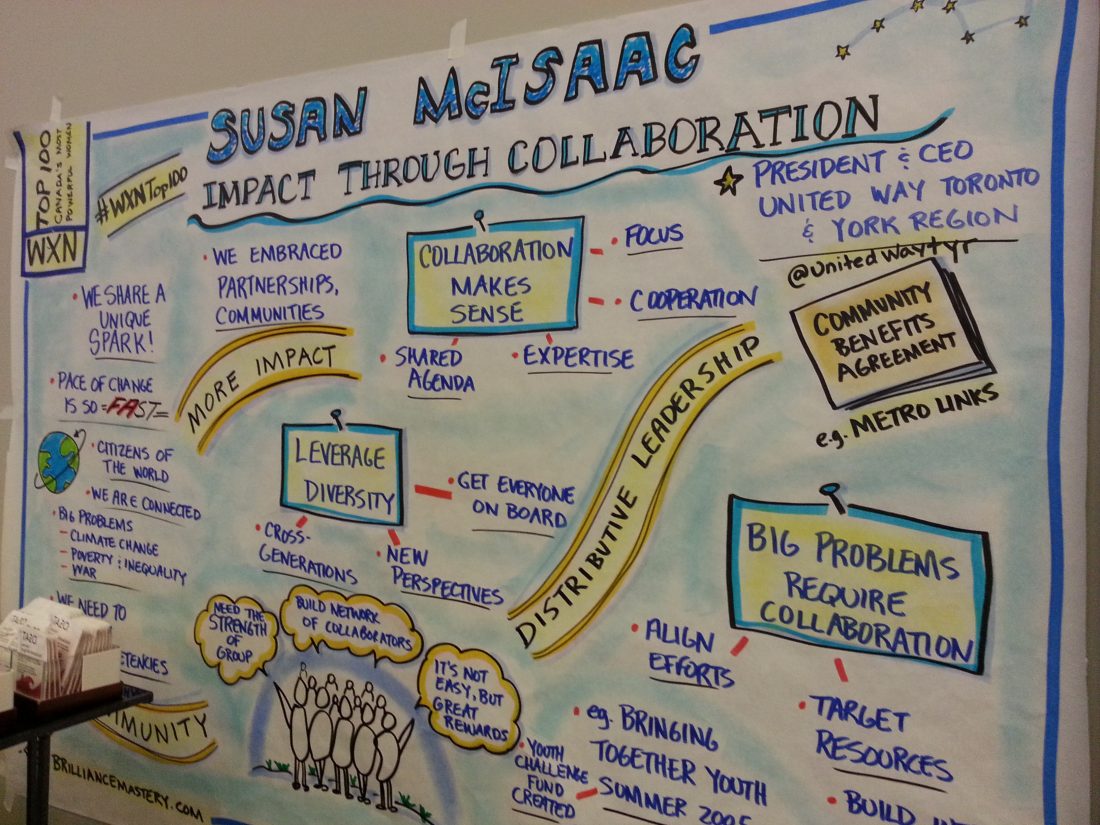 SUSAN McISAAC
IMPACT THROUGH COLLABORATION
TOP 100
CANADA'S MOST
POWERFUL WOMEN
WXN
#WXNTop100
PRESIDENT & CEO
UNITED WAY TORONTO
& YORK REGION
@unitedwaytyr
• WE SHARE A
UNIQUE
SPARK!
PACE OF CHANGE
IS SO =FAST=
• CITIZENS OF
THE WORLD
• WE ARE CONNECTED
• BIG PROBLEMS
– CLIMATE CHANGE
– POVERTY & INEQUALITY
– WAR
• WE NEED TO
• WE EMBRACED
PARTNERSHIPS,
COMMUNITIES
MORE IMPACT
COLLABORATION
MAKES
SENSE
• FOCUS
• COOPERATION
• SHARED
AGENDA
• EXPERTISE
COMMUNITY
BENEFITS
AGREEMENT
e.g. METRO LINKS
LEVERAGE
DIVERSITY
• GET EVERYONE
ON BOARD
• CROSS-
GENERATIONS
• NEW
PERSPECTIVES
DISTRIBUTIVE LEADERSHIP
BIG PROBLEMS
REQUIRE
COLLABORATION
• ALIGN
EFFORTS
• TARGET
RESOURCES
• BUILD
• eg. BRINGING
TOGETHER YOUTH
SUMMER 2005
• YOUTH
CHALLENGE
FUND
CREATED
NEED THE
STRENGTH
OF
GROUP
BUILD NETWORK
OF COLLABORATORS
IT'S NOT
EASY, BUT
GREAT
REWARDS
BRILLIANCEMASTERY.COM
TAZO